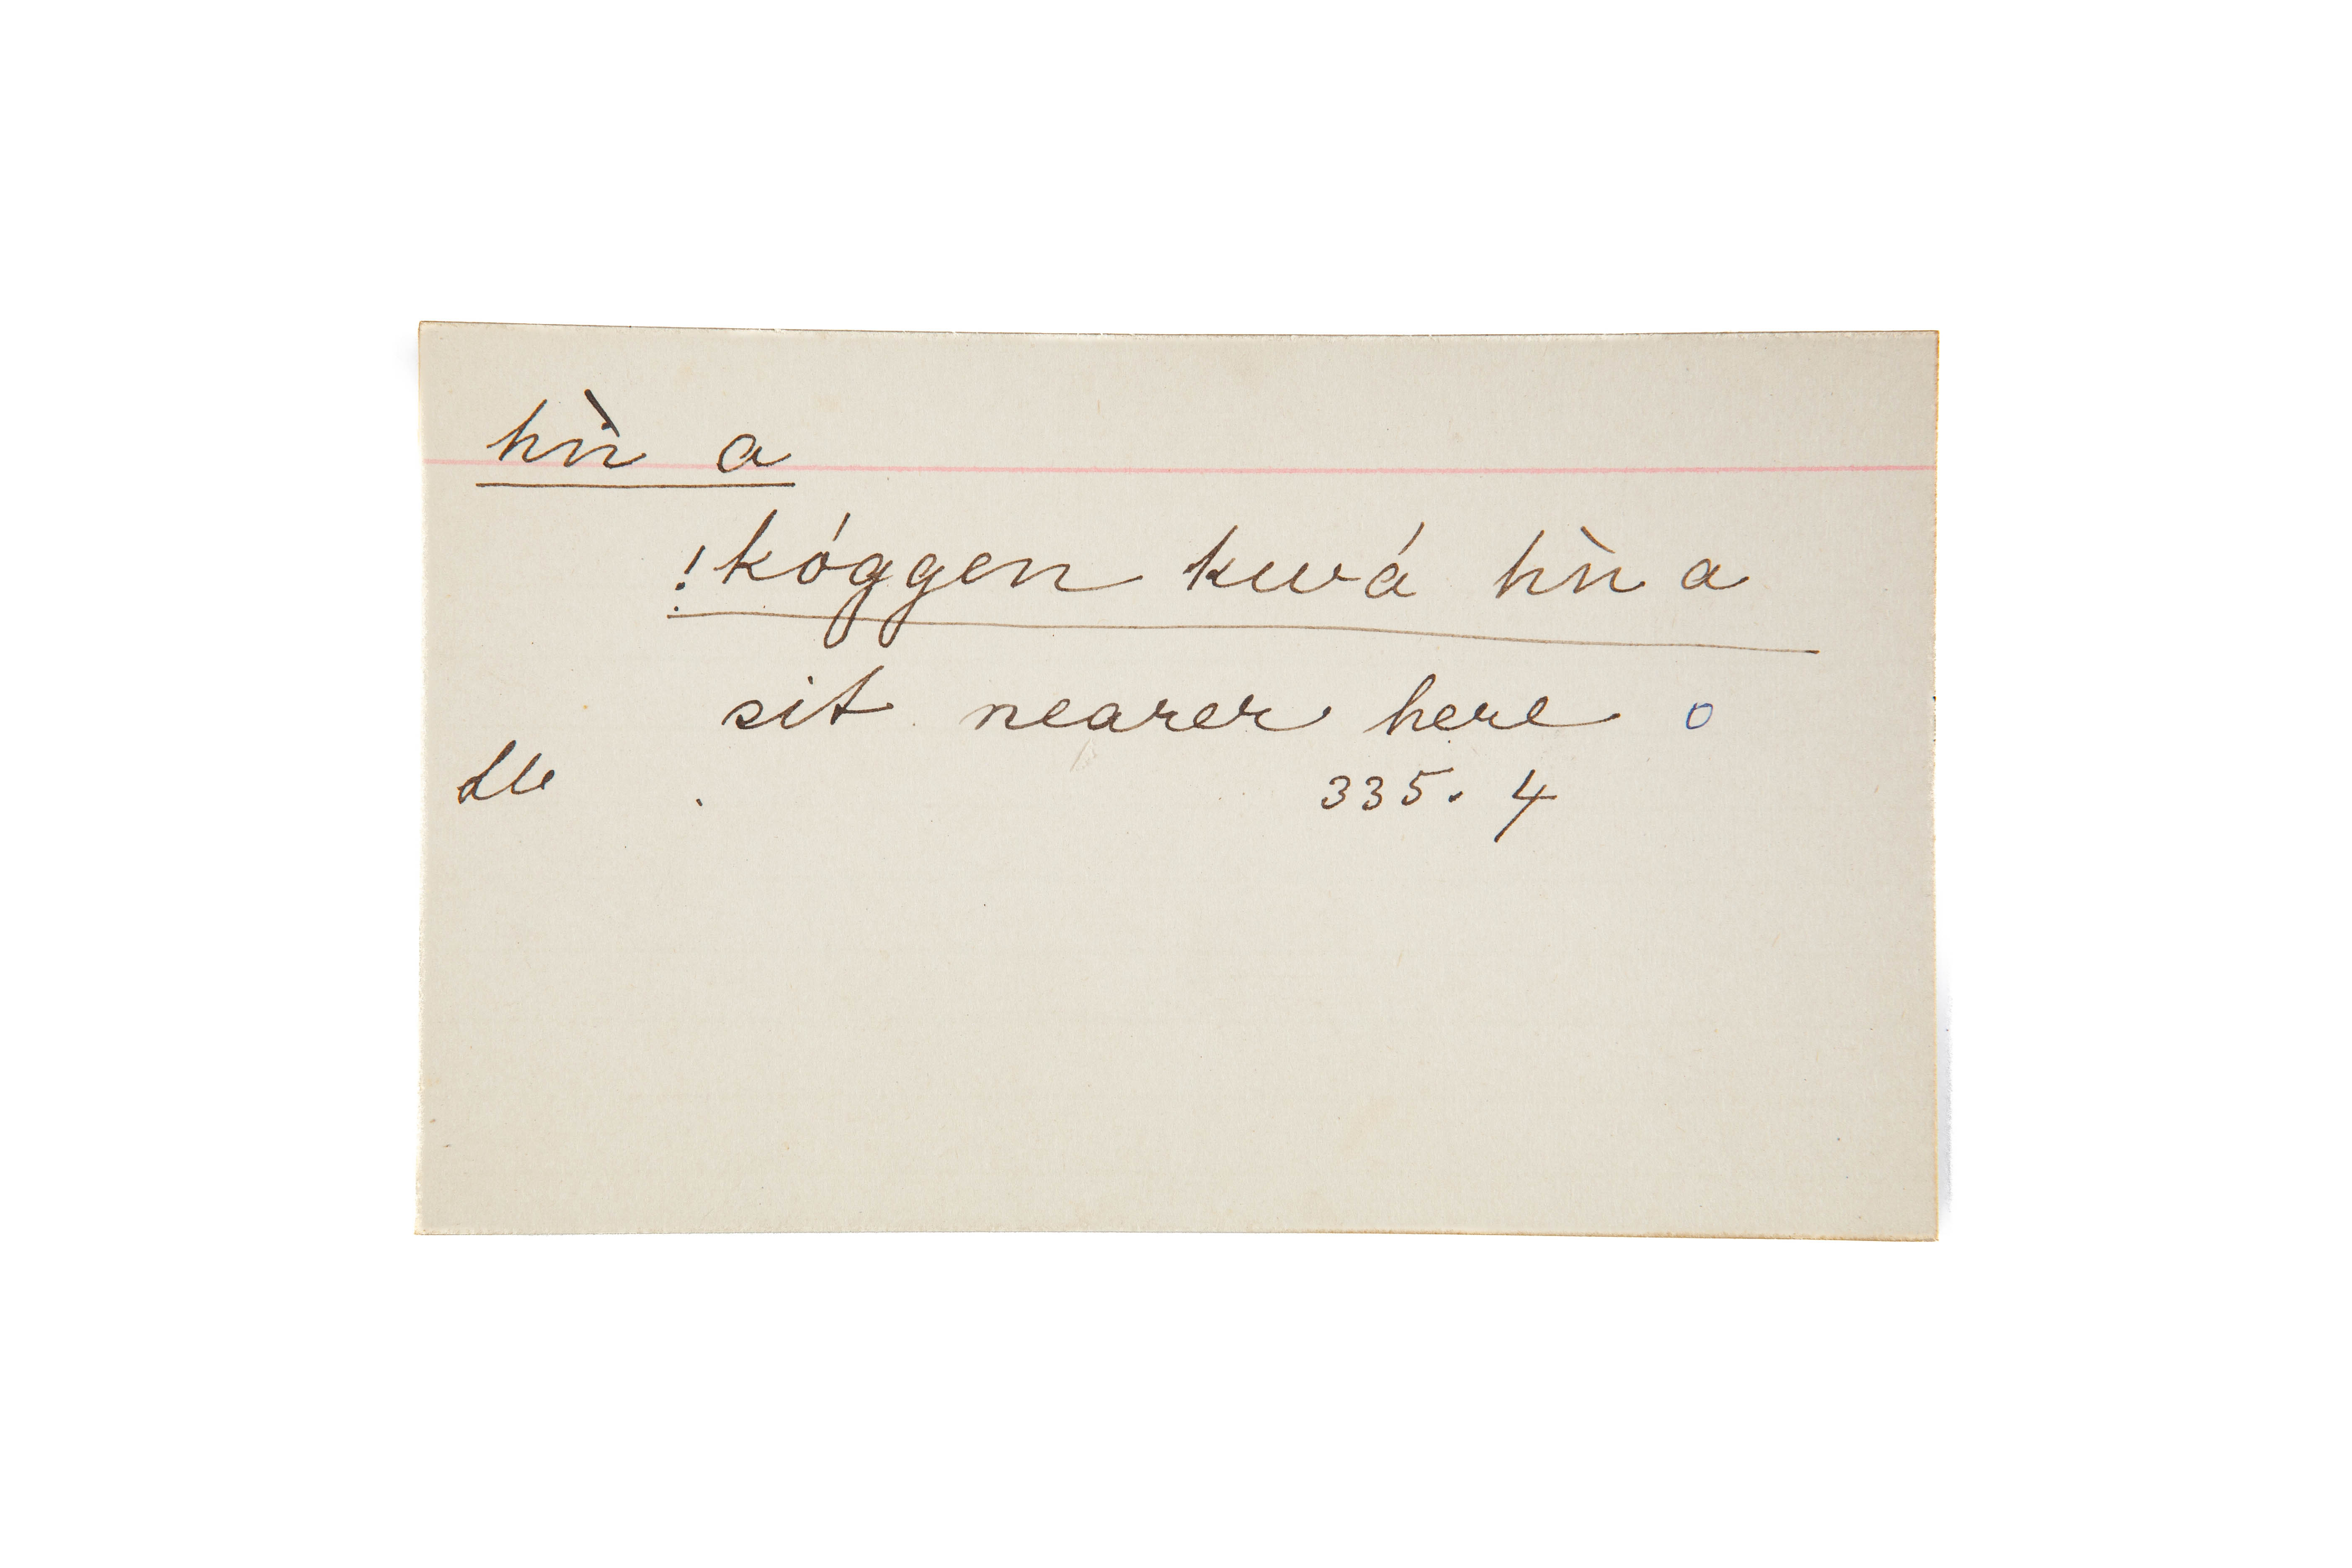 hǹ a
!kóggen kwá hǹ a
sit nearer here o
335. 4